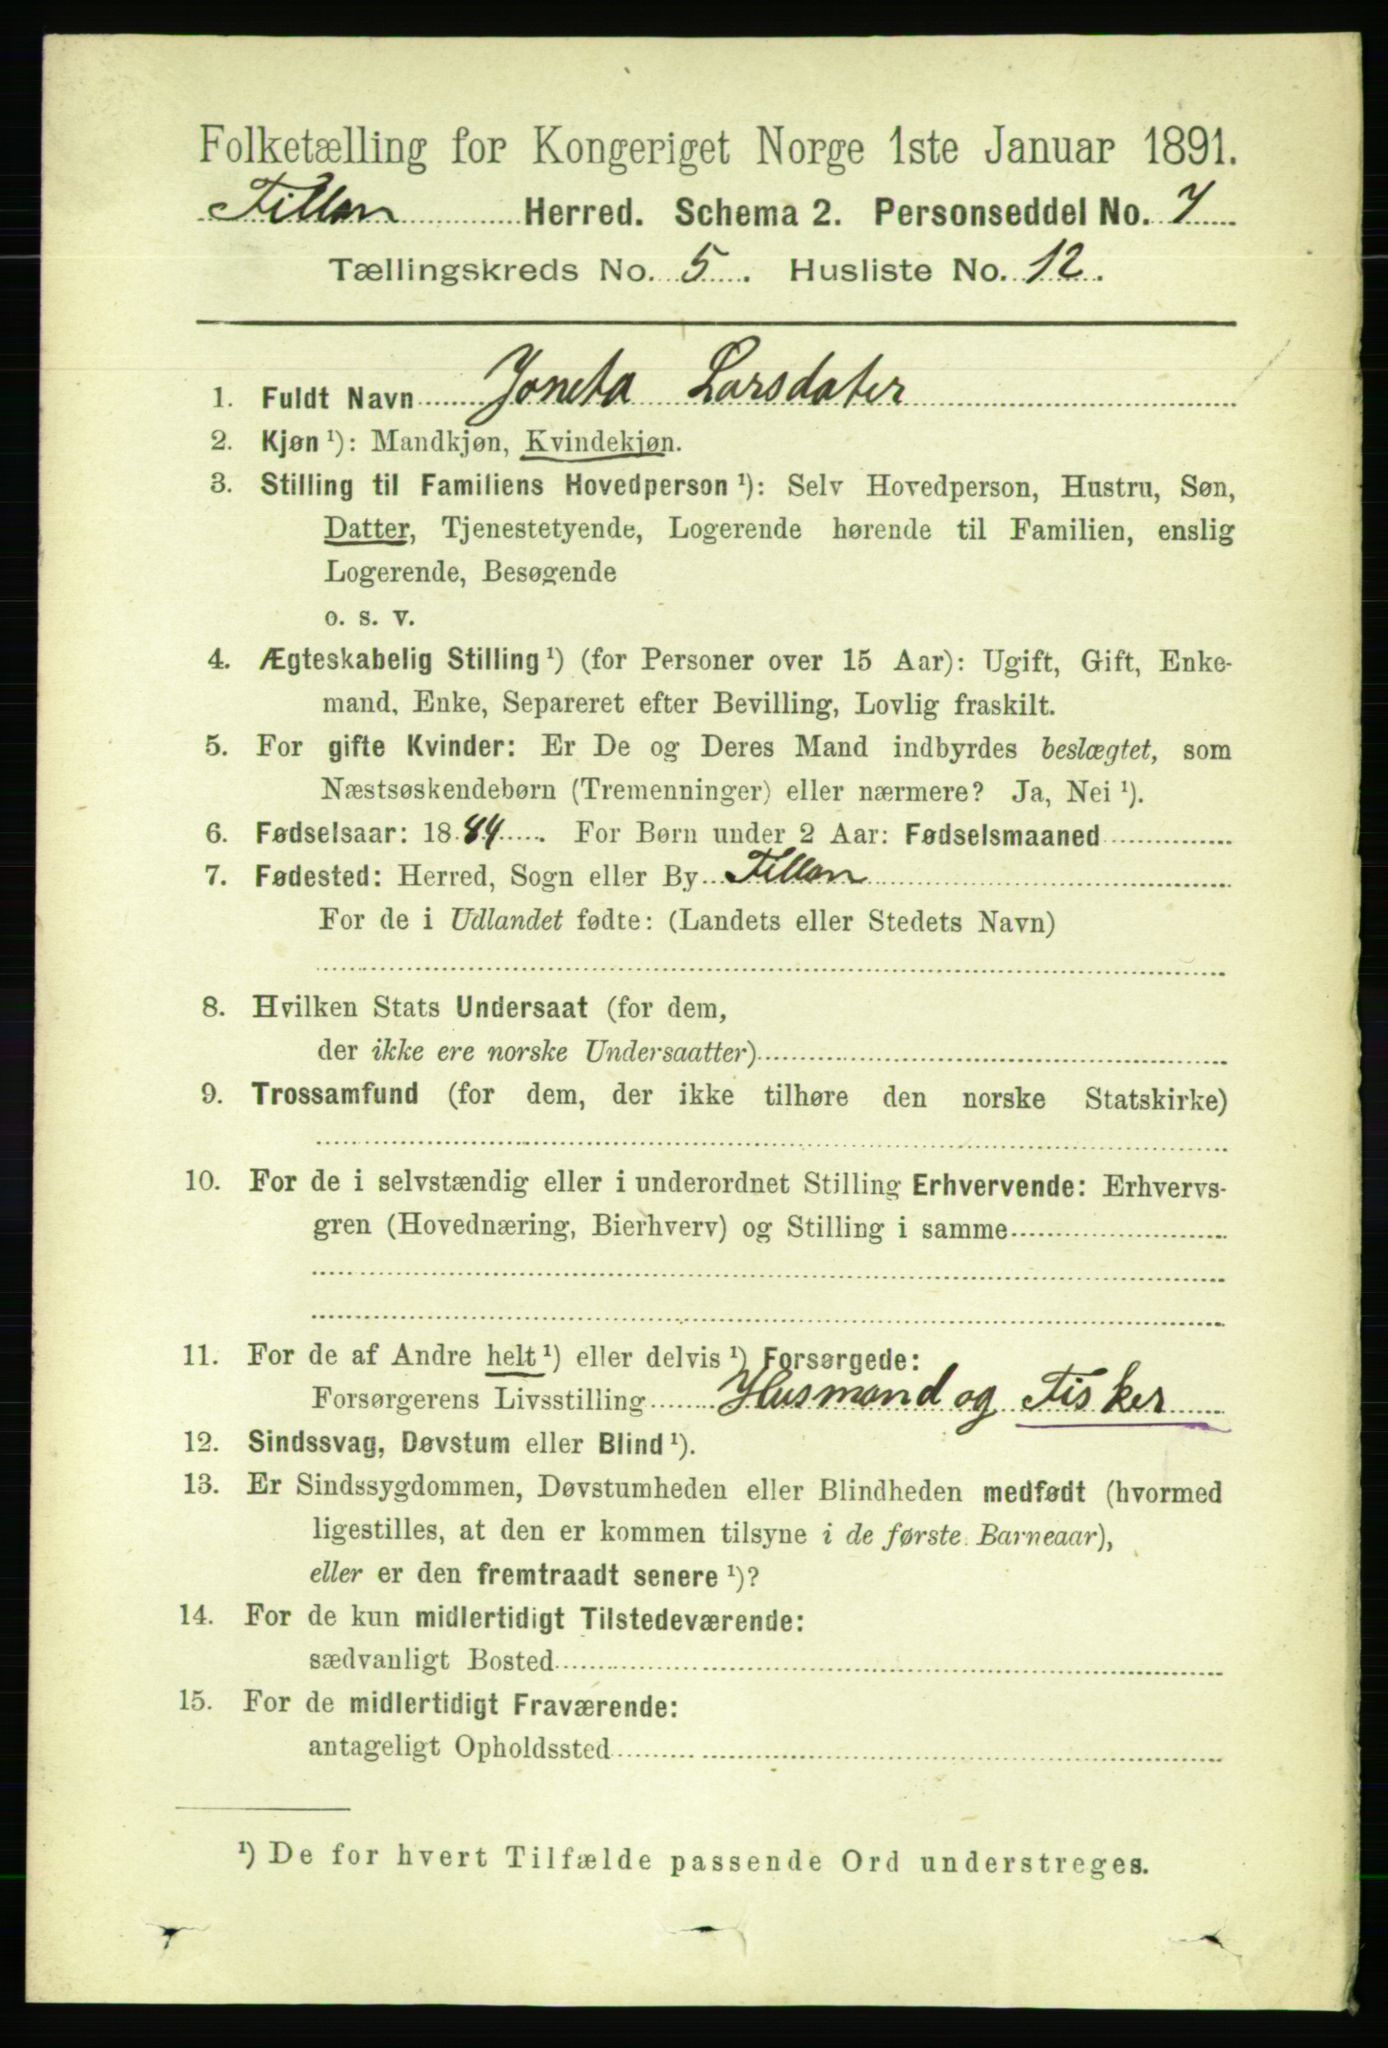 Folketælling for Kongeriget Norge 1ste Januar 1891.
Fillan Herred. Schema 2. Personseddel No. 7
Tællingskreds No. 5. Husliste No. 12.
1. Fuldt Navn Joneta Larsdater
2. Kjøn ¹): Mandkjøn, Kvindekjøn.
3. Stilling til Familiens Hovedperson ¹): Selv Hovedperson, Hustru, Søn,
Datter, Tjenestetyende, Logerende hørende til Familien, enslig
Logerende, Besøgende
o. s. v.
4. Ægteskabelig Stilling ¹) (for Personer over 15 Aar): Ugift, Gift, Enke-
mand, Enke, Separeret efter Bevilling, Lovlig fraskilt.
5. For gifte Kvinder: Er De og Deres Mand indbyrdes beslægtet, som
Næstsøskendebørn (Tremenninger) eller nærmere? Ja, Nei ¹).
6. Fødselsaar: 1884. For Børn under 2 Aar: Fødselsmaaned
7. Fødested: Herred, Sogn eller By Fillan
For de i Udlandet fødte: (Landets eller Stedets Navn)
8. Hvilken Stats Undersaat (for dem,
der ikke ere norske Undersaatter)
9. Trossamfund (for dem, der ikke tilhøre den norske Statskirke)
10. For de i selvstændig eller i underordnet Stilling Erhvervende: Erhvervs-
gren (Hovednæring, Bierhverv) og Stilling i samme
11. For de af Andre helt ¹) eller delvis ¹) Forsørgede:
Forsørgerens Livsstilling Husmand og Fisker
12. Sindssvag, Døvstum eller Blind ¹).
13. Er Sindssygdommen, Døvstumheden eller Blindheden medfødt (hvormed
ligestilles, at den er kommen tilsyne i de første Barneaar),
eller er den fremtraadt senere ¹)?
14. For de kun midlertidigt Tilstedeværende:
sædvanligt Bosted
15. For de midlertidigt Fraværende:
antageligt Opholdssted
¹) De for hvert Tilfælde passende Ord understreges.